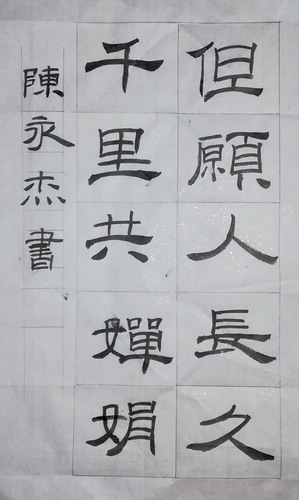 但願人長久
千里共嬋娟
陳永杰書